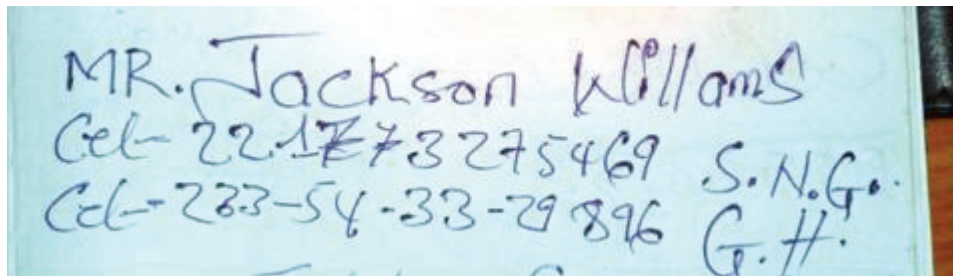 MR. Jackson Willams
Cel- 221773275469 S.N.G.
Cel--233-54-33-29896 G.H.